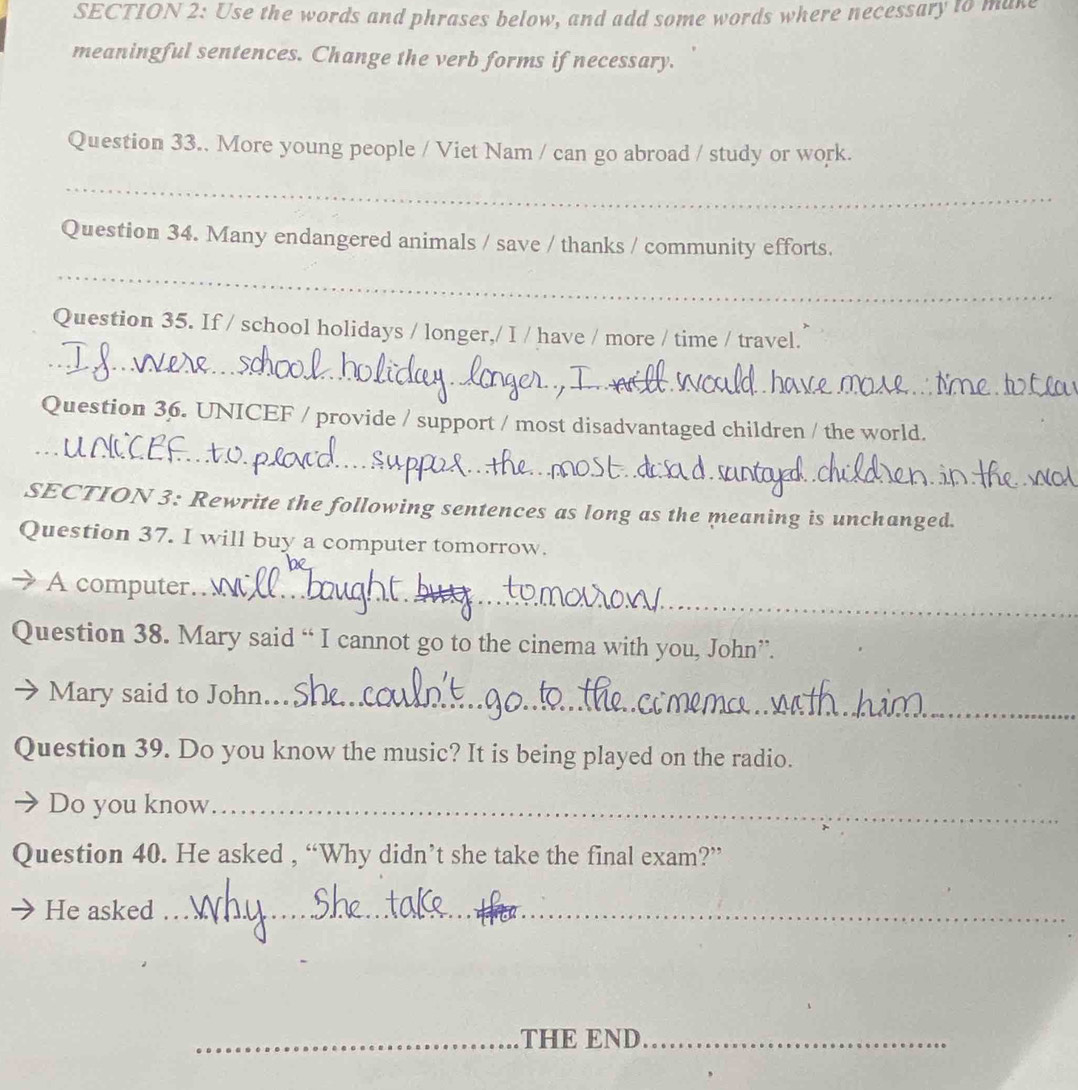 SECTION 2: Use the words and phrases below, and add some words where necessary to make
meaningful sentences. Change the verb forms if necessary.
Question 33.. More young people / Viet Nam / can go abroad / study or work.
Question 34. Many endangered animals / save / thanks / community efforts.
Question 35. If / school holidays / longer,/ I / have / more / time / travel.
If were school holiday longer, I will would have more time to
Question 36. UNICEF / provide / support / most disadvantaged children / the world.
UNICEF to the most children in the
SECTION 3: Rewrite the following sentences as long as the meaning is unchanged.
Question 37. I will buy a computer tomorrow.
→ A computer will be bought buy tomorrow
Question 38. Mary said “ I cannot go to the cinema with you, John”.
→ Mary said to John... she couln't go to the with him
Question 39. Do you know the music? It is being played on the radio.
→ Do you know
Question 40. He asked , “Why didn’t she take the final exam?”
→ He asked ... Why she take
THE END